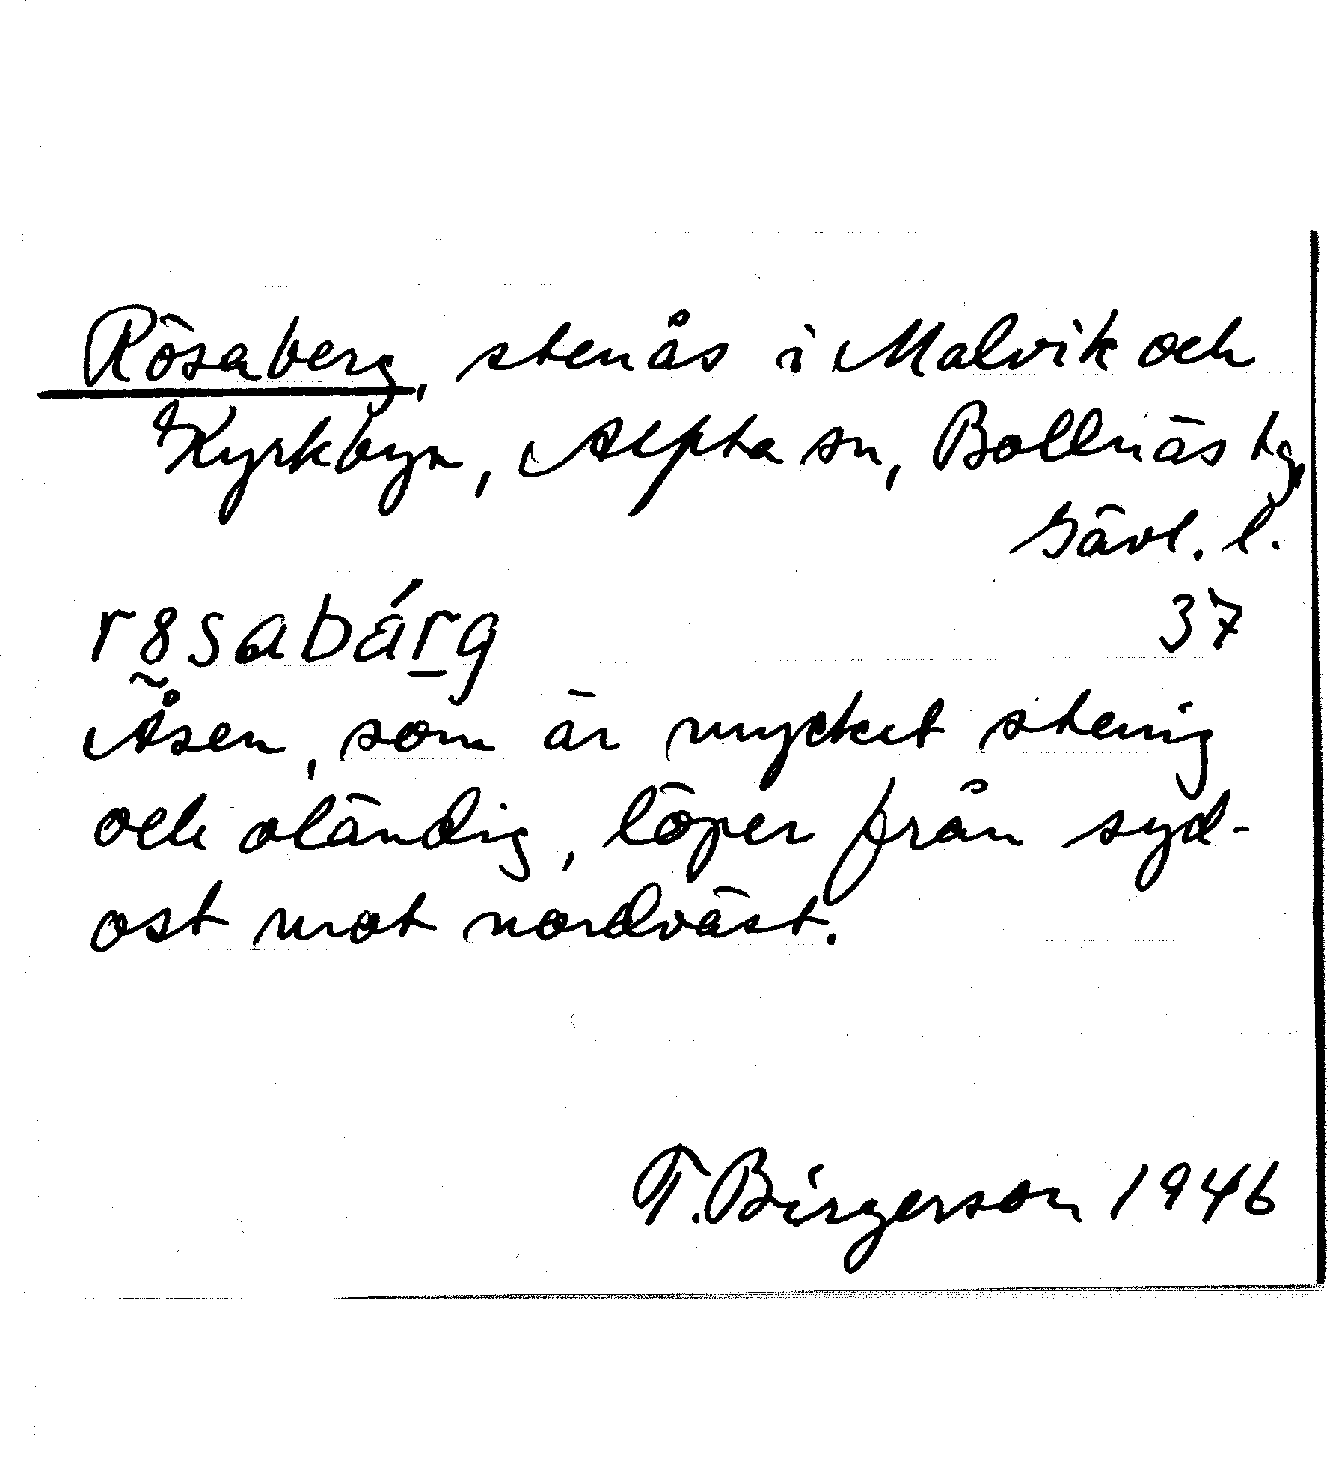 Rösaberg, stenås i Malvik och
Kyrkbyn, Alfta sn, Bollnäs tg,
Gävl. l.
rȣ̰sabárg 37
Åsen, som är mycket stenig
och oländig, löper från syd-
ost mot nordväst.
T. Birgerson 1946